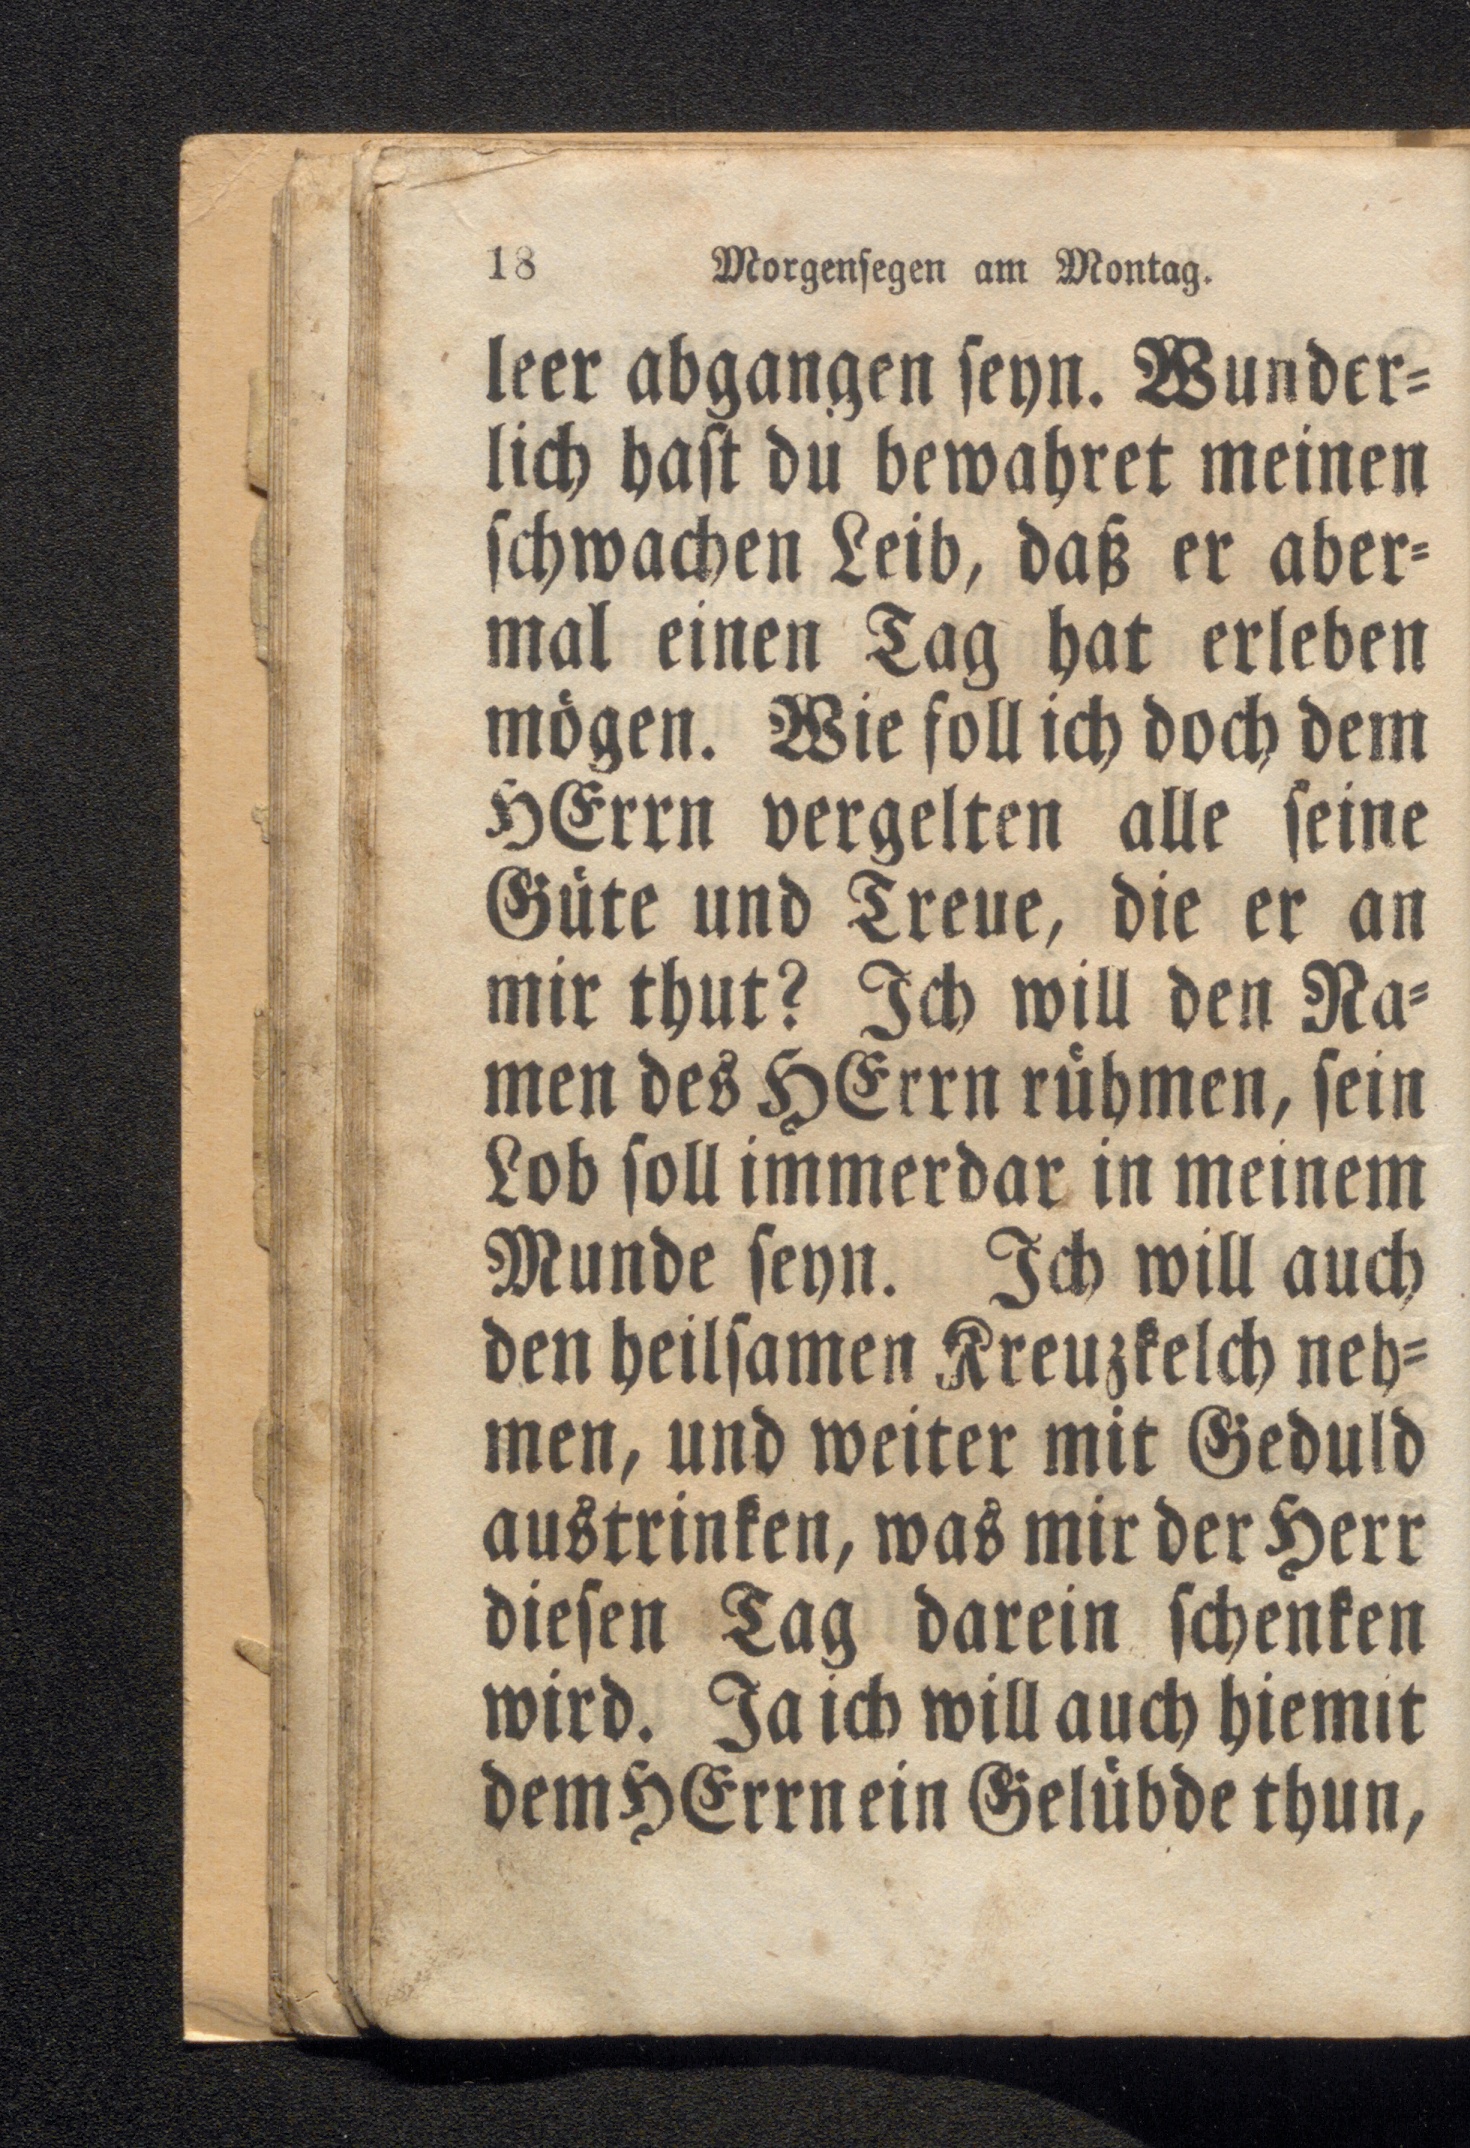 18 Morgensegen am Montag.
leer abgangen seyn. Wunder=
lich hast du bewahret meinen
schwachen Leib, daß er aber=
mal einen Tag hat erleben
mögen. Wie soll ich doch dem
HErrn vergelten alle seine
Güte und Treue, die er an
mir thut? Ich will den Na=
men des HErrn rühmen, sein
Lob soll immerdar in meinem
Munde seyn. Ich will auch
den heilsamen Kreuzkelch neh=
men, und weiter mit Geduld
austrinken, was mir der Herr
diesen Tag darein schenken
wird. Ja ich will auch hiemit
dem HErrn ein Gelübde thun,